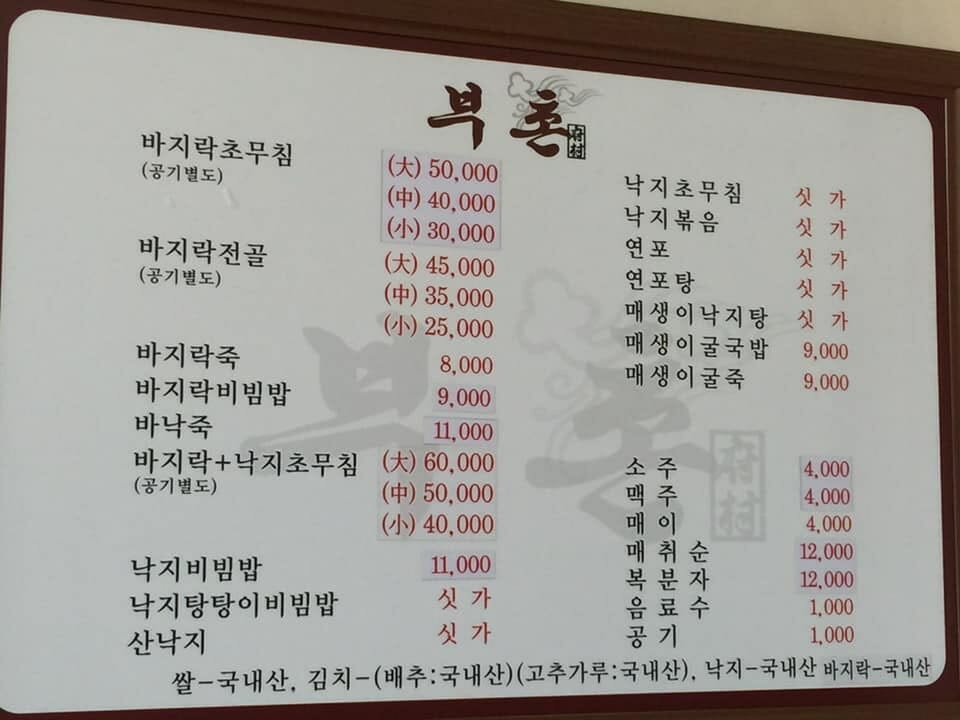 부촌
府村
바지락초무침 (大) 50,000
(공기별도) (中) 40,000
(小) 30,000
바지락전골 (大) 45,000
(공기별도) (中) 35,000
(小) 25,000
바지락죽 8,000
바지락비빔밥 9,000
바낙죽 11,000
바지락+낙지초무침 (大) 60,000
(공기별도) (中) 50,000
(小) 40,000
낙지비빔밥 11,000
낙지탕탕이비빔밥 싯 가
산낙지 싯 가
낙지초무침 싯 가
낙지볶음 싯 가
연포 싯 가
연포탕 싯 가
매생이낙지탕 싯 가
매생이굴국밥 9,000
매생이굴죽 9,000
소 주 4,000
맥 주 4,000
매 이 4,000
매 취 순 12,000
복 분 자 12,000
음 료 수 1,000
공 기 1,000
쌀-국내산, 김치-(배추:국내산)(고추가루:국내산), 낙지-국내산 바지락-국내산
부촌
府村